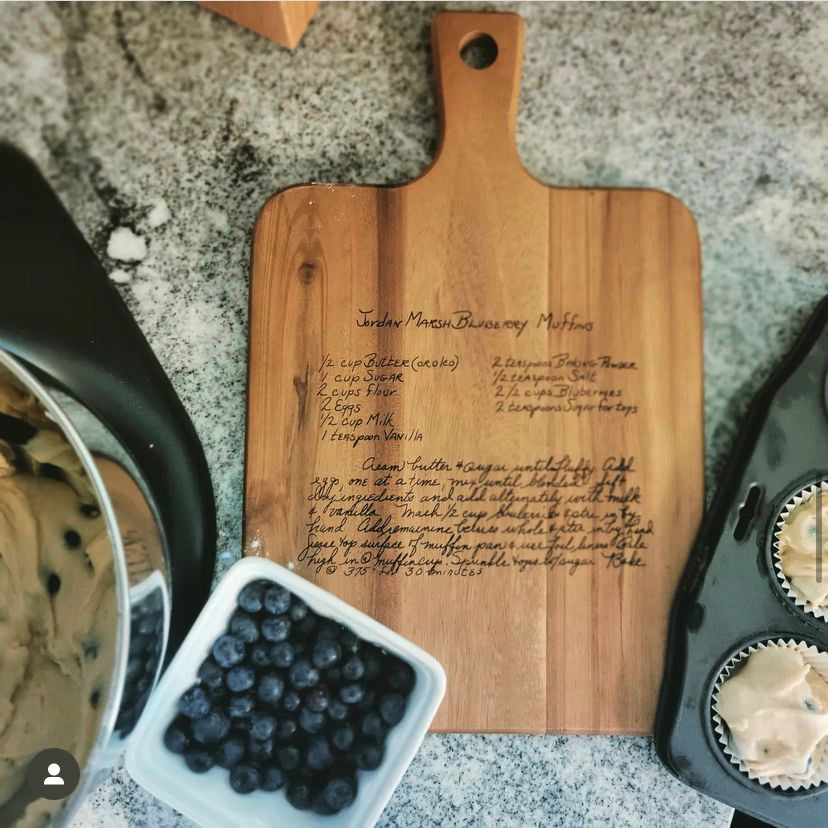 Jordan Marsh Blueberry Muffins
1/2 cup Butter (oroleo)
1 cup Sugar
2 cups Flour
2 Eggs
1/2 cup Milk
1 teaspoon Vanilla
2 teaspoons Baking Powder
1/2 teaspoon Salt
2 1/2 cups Bluberries
2 teaspoons Sugar for tops
Cream butter & sugar until fluffy Add
eggs one at a time, mix until blended Sift
dry ingredients and add alternately with milk
& vanilla Mash 1/2 cup in by
hand Add whole in by hand
top surface of muffin pan & use liners
high in muffin cup. Sprinkle tops w/sugar Bake
@ 375° 30 minutes